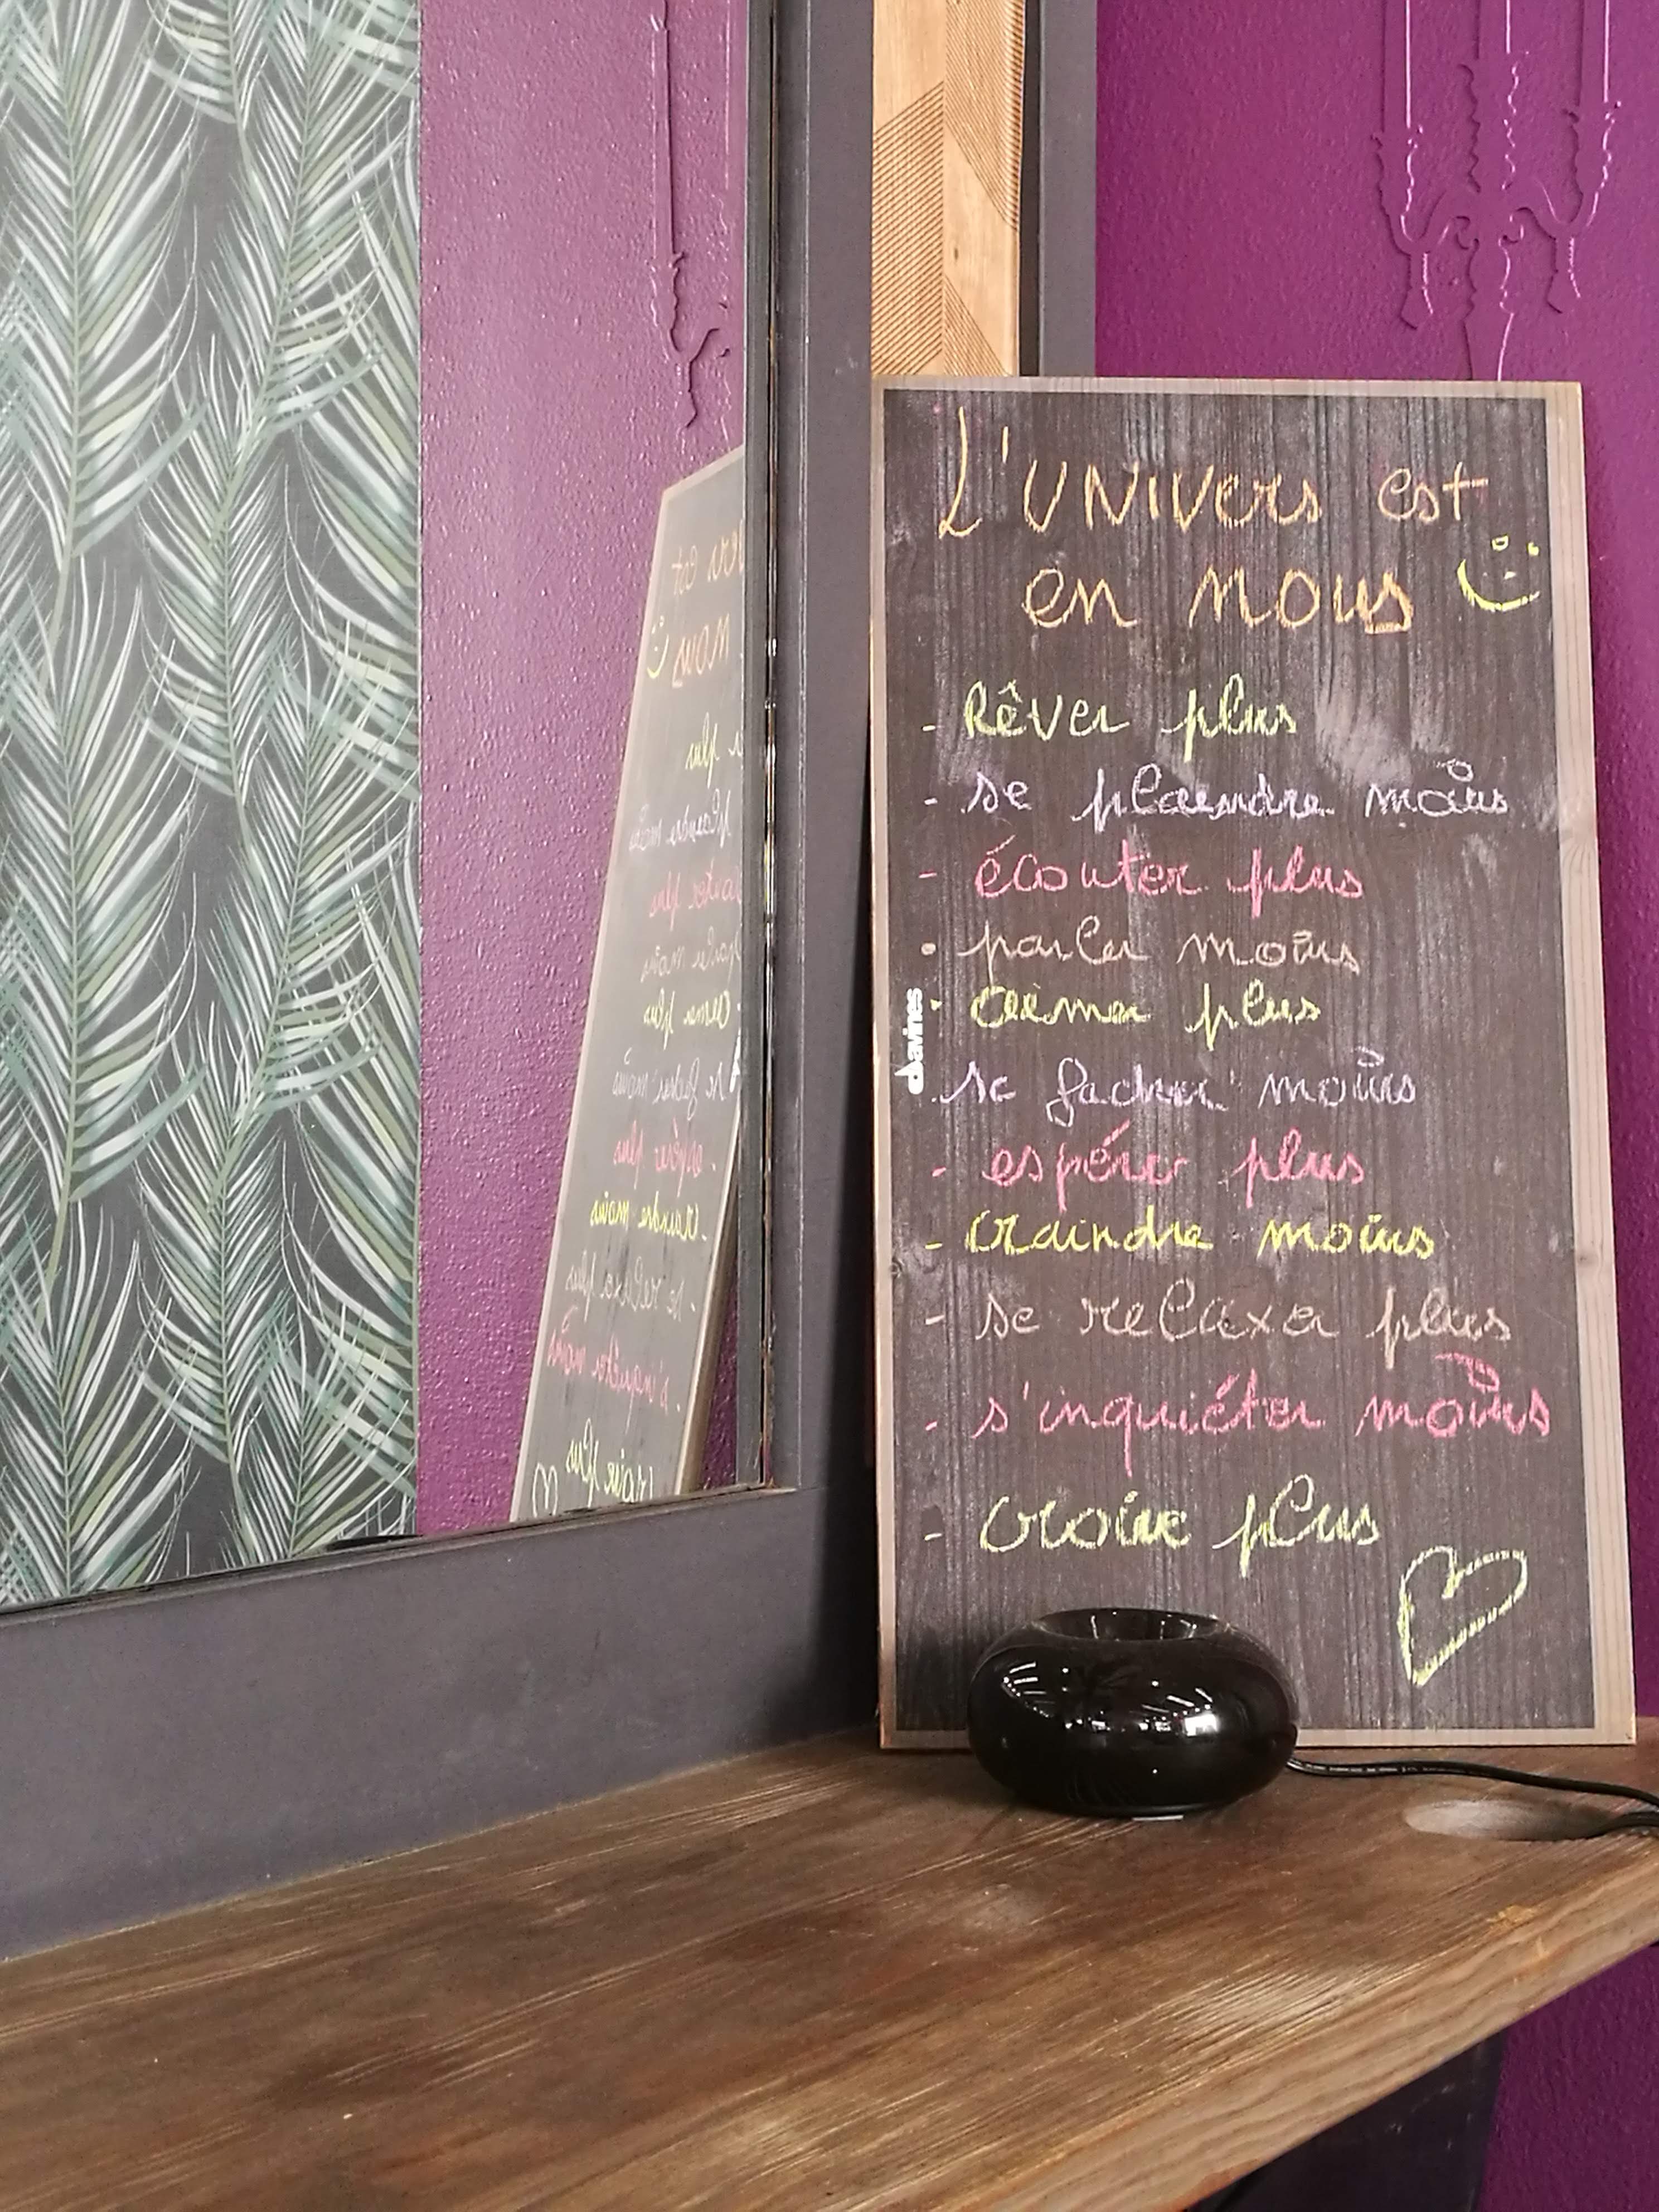 L'UNIVers est
en nous
- Rêver plus
- se plaindre moins
- écouter plus
• parler moins
• aimer plus
. se facher moins
- espérer plus
- craindre moins
- se relaxer plus
- s'inquiéter moins
- croire plus
davines